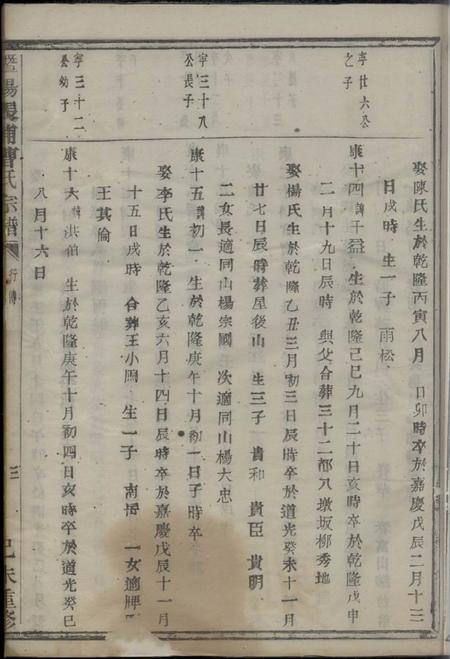 娶陳氏生於乾隆丙寅八月 日卯時卒於嘉慶戊辰二月十三
日戌時 生一子 雨松
寧廿六公之子
康十四諱千益 生於乾隆己巳九月二十日亥時卒於乾隆戊申
二月十九日辰時 與父合葬三十二都八墩坂柳秀地
娶楊氏生於乾隆乙丑三月初三日辰時卒於道光癸未十一月
廿七日辰時葬屋後山 生三子 貴和 貴臣 貴明
二女長適同山楊宗國 次適同山楊大忠
寧三十八公長子
康十五諱初一 生於乾隆庚午十月初一日子時卒
娶李氏生於乾隆乙亥六月十四日辰時卒於嘉慶戊辰十一月
十五日戌時 合葬王小岡 生一子 南悟 一女適
王其倫
寧三十二公幼子
康十六諱洪伯 生於乾隆庚午十月初四日亥時卒於道光癸巳
八月十六日
暨陽 浦 氏宗譜 行傳 三 己未重修